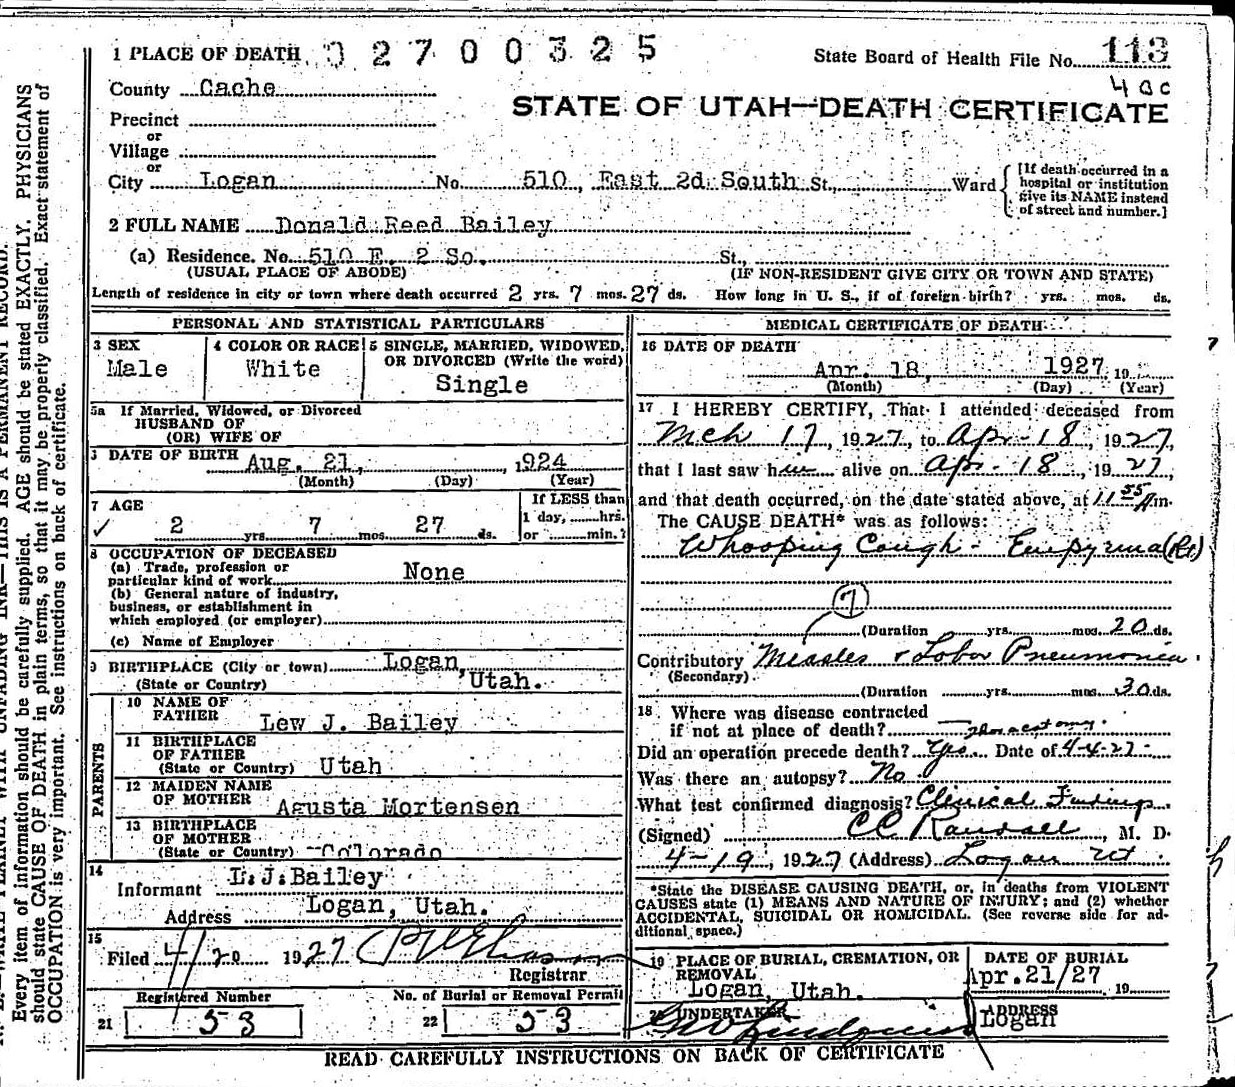 1 PLACE OF DEATH 02700325 State Board of Health File No. 113
County Cache
STATE OF UTAH—DEATH CERTIFICATE
Precinct
or
Village
or
City Logan No. 510, East 2d South St., Ward
[If death occurred in a
hospital or institution
give its NAME instead
of street and number.]
2 FULL NAME Donald Reed Bailey
(a) Residence. No. 510 E. 2 So. St.,
(USUAL PLACE OF ABODE) (IF NON-RESIDENT GIVE CITY OR TOWN AND STATE)
Length of residence in city or town where death occurred 2 yrs. 7 mos. 27 ds. How long in U. S., if of foreign birth? yrs. mos. ds.
PERSONAL AND STATISTICAL PARTICULARS
3 SEX
Male
4 COLOR OR RACE
White
5 SINGLE, MARRIED, WIDOWED,
OR DIVORCED (Write the word)
Single
5a If Married, Widowed, or Divorced
HUSBAND OF
(OR) WIFE OF
DATE OF BIRTH Aug. 21, 1924
(Month) (Day) (Year)
7 AGE
2 yrs. 7 mos. 27 ds.
If LESS than
1 day, hrs.
or min.?
8 OCCUPATION OF DECEASED
(a) Trade, profession or
particular kind of work None
(b) General nature of industry,
business, or establishment in
which employed (or employer)
(c) Name of Employer
9 BIRTHPLACE (City or town) Logan,
(State or Country) Utah.
PARENTS
10 NAME OF
FATHER Lew J. Bailey
11 BIRTHPLACE
OF FATHER
(State or Country) Utah
12 MAIDEN NAME
OF MOTHER Agusta Mortensen
13 BIRTHPLACE
OF MOTHER
(State or Country) Colorado
14
Informant L.J.Bailey
Address Logan, Utah.
15
Filed 4/20 1927
Registrar
Registered Number
21 53
No. of Burial or Removal Permit
22 53
MEDICAL CERTIFICATE OF DEATH
16 DATE OF DEATH
Apr. 18, 1927 19
(Month) (Day) (Year)
17 I HEREBY CERTIFY, That I attended deceased from
Mch 17, 1927, to Apr-18, 1927,
that I last saw him alive on Apr-18, 1927,
and that death occurred, on the date stated above, at 11 55 A m.
The CAUSE DEATH* was as follows:
Whooping Cough - Empyema (Rt)
7
(Duration yrs. mos. 20 ds.
Contributory Measles & Lobar Pneumonia.
(Secondary)
(Duration yrs. mos. 30 ds.
18 Where was disease contracted
if not at place of death?
Did an operation precede death? Yes Date of 4-4-27
Was there an autopsy? No
What test confirmed diagnosis? Clinical Findings
(Signed) CC Randall, M. D.
4-19, 1927 (Address) Logan Ut
*State the DISEASE CAUSING DEATH, or, in deaths from VIOLENT
CAUSES state (1) MEANS AND NATURE OF INJURY; and (2) whether
ACCIDENTAL, SUICIDAL OR HOMICIDAL. (See reverse side for ad-
ditional space.)
19 PLACE OF BURIAL, CREMATION, OR
REMOVAL
Logan, Utah.
DATE OF BURIAL
Apr.21/27 19
20 UNDERTAKER
ADDRESS
Logan
READ CAREFULLY INSTRUCTIONS ON BACK OF CERTIFICATE
Every item of information should be carefully supplied. AGE should be stated EXACTLY. PHYSICIANS
should state CAUSE OF DEATH in plain terms, so that it may be properly classified. Exact statement of
OCCUPATION is very important. See instructions on back of certificate.